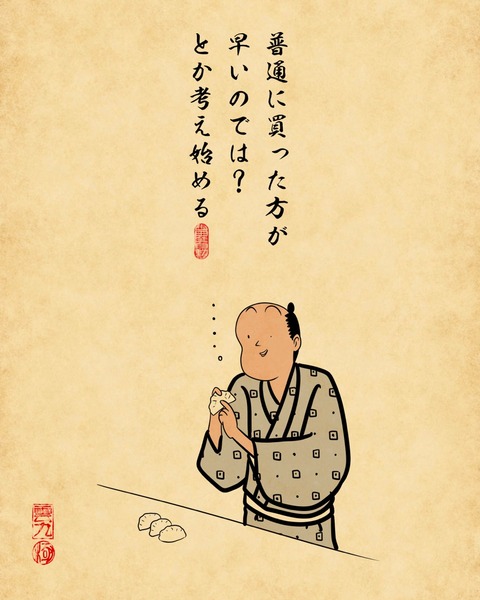 普通に買った方が
早いのでは？
とか考え始める